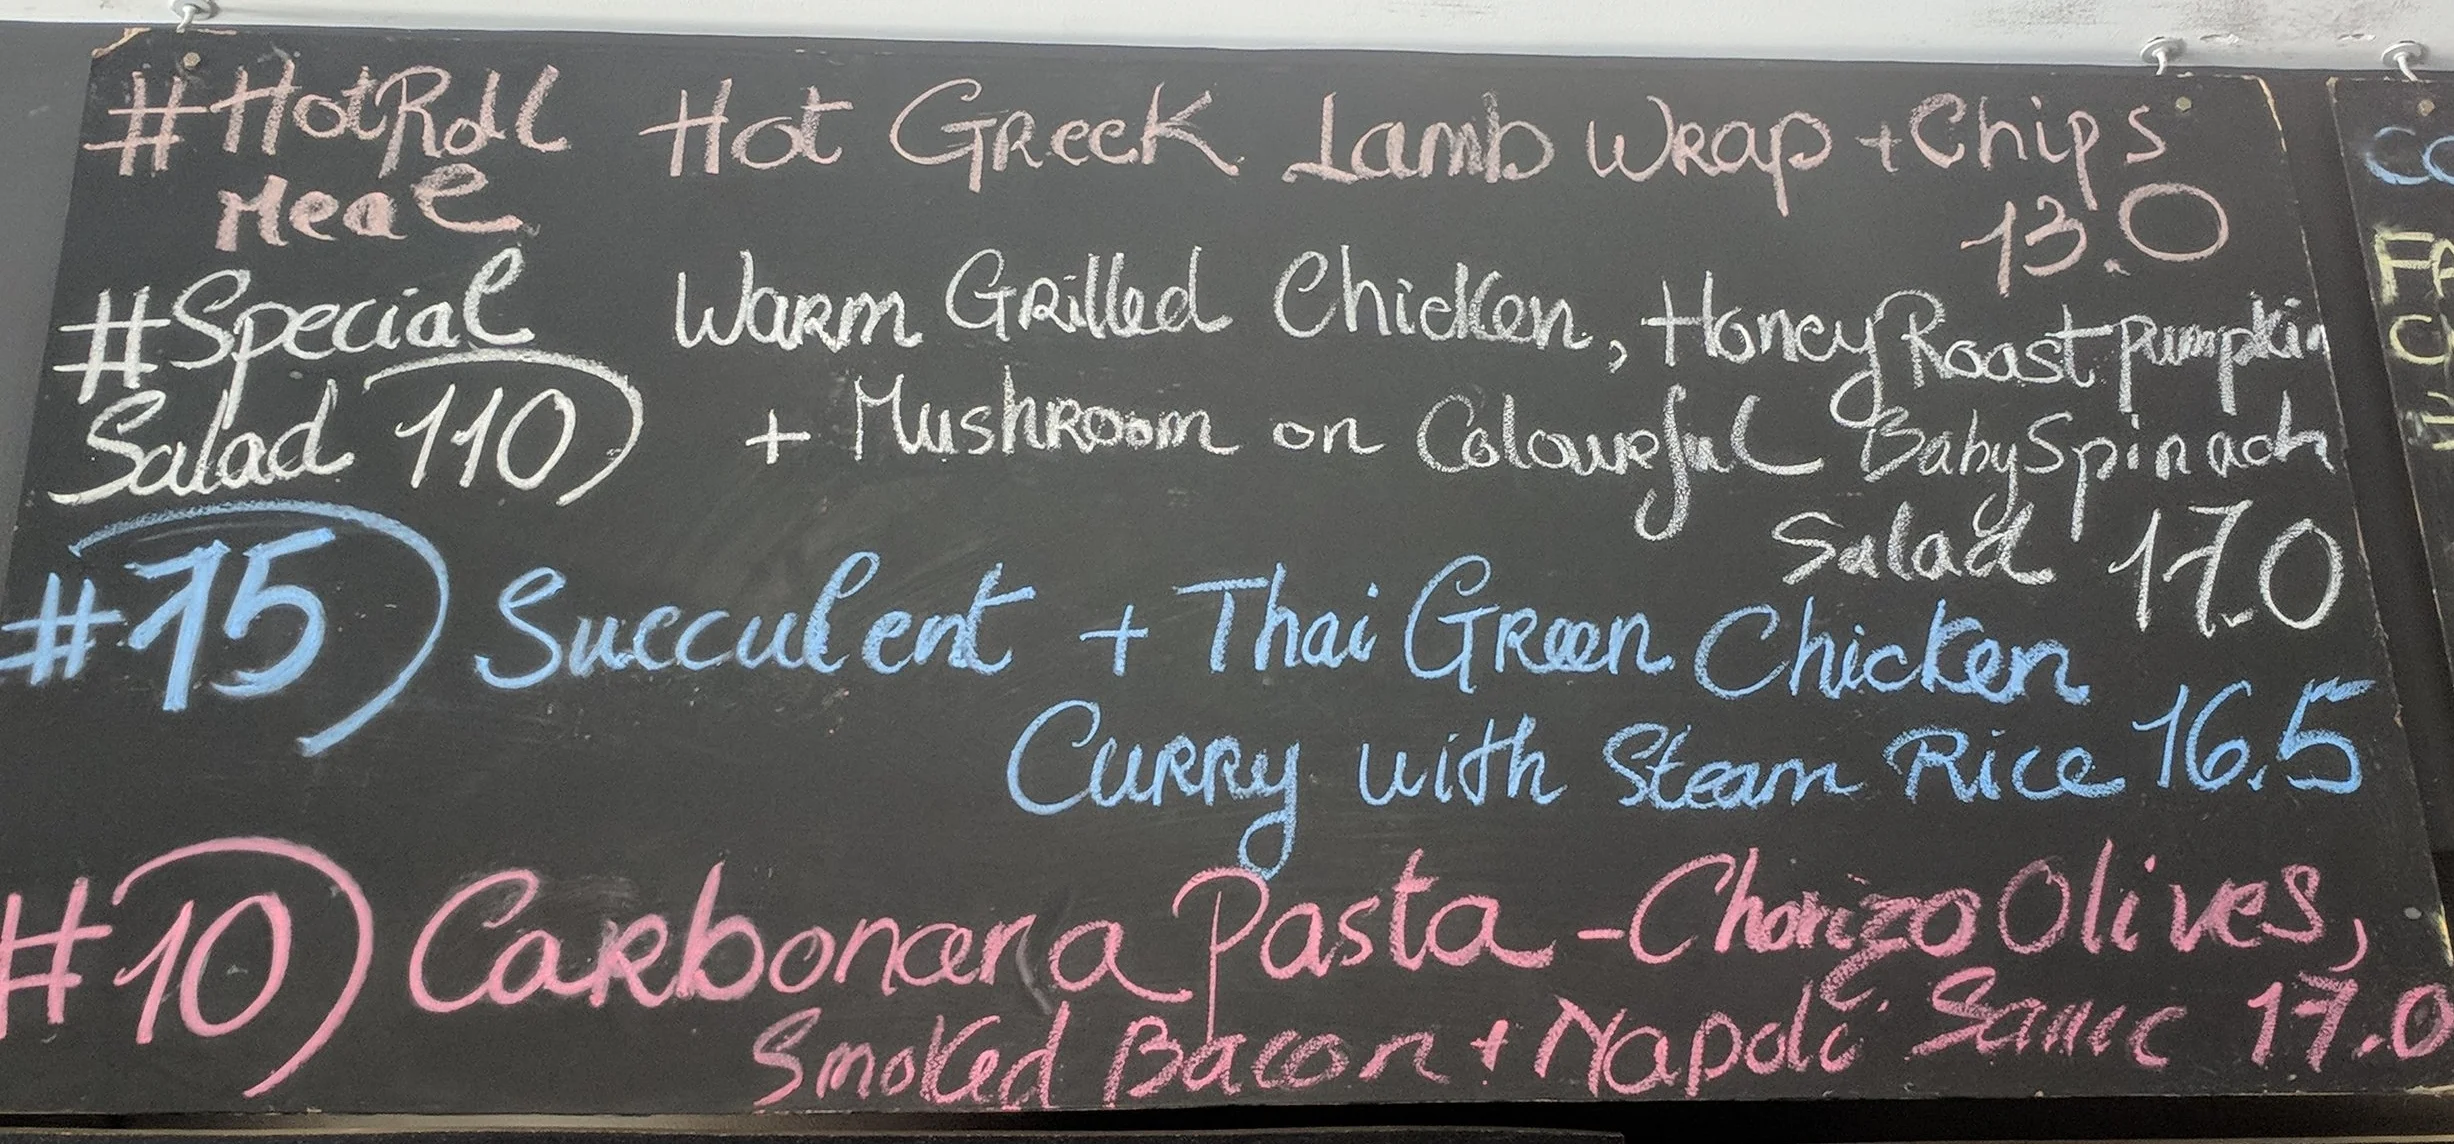 #HotRoll Hot Greek Lamb Wrap + Chips
Meal 13.0
#Special Warm Grilled Chicken, Honey Roast Pumpkin
Salad 110) + Mushroom on Colourful Baby Spinach
Salad 17.0
#15) Succulent + Thai Green Chicken
Curry with Steam Rice 16.5
#10) Carbonara Pasta - Chorizo Olives,
Smoked Bacon + Napoli Sauce 17.0